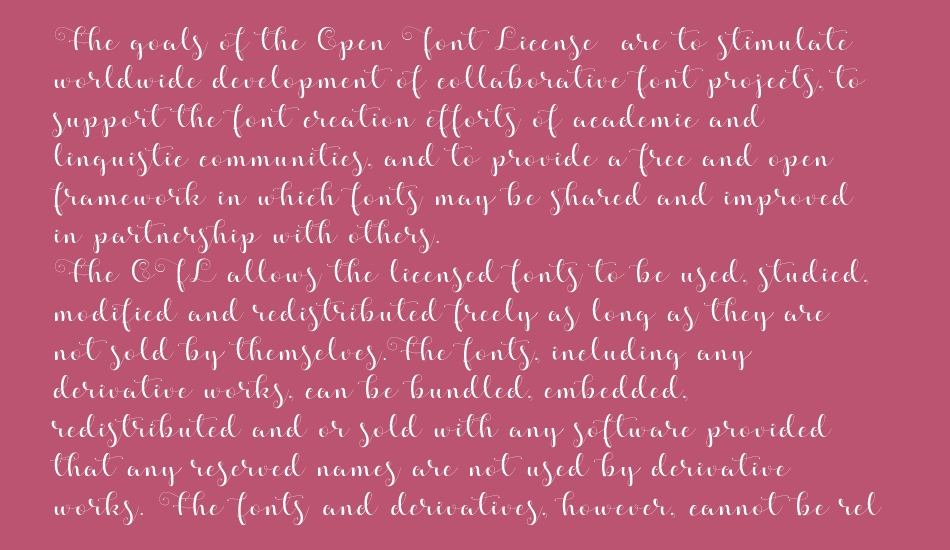 The goals of the Open Font License are to stimulate
worldwide development of collaborative font projects, to
support the font creation efforts of academic and
linguistic communities, and to provide a free and open
framework in which fonts may be shared and improved
in partnership with others.
The OFL allows the licensed fonts to be used, studied,
modified and redistributed freely as long as they are
not sold by themselves.The fonts, including any
derivative works, can be bundled, embedded,
redistributed and or sold with any software provided
that any reserved names are not used by derivative
works. The fonts and derivatives, however, cannot be rel